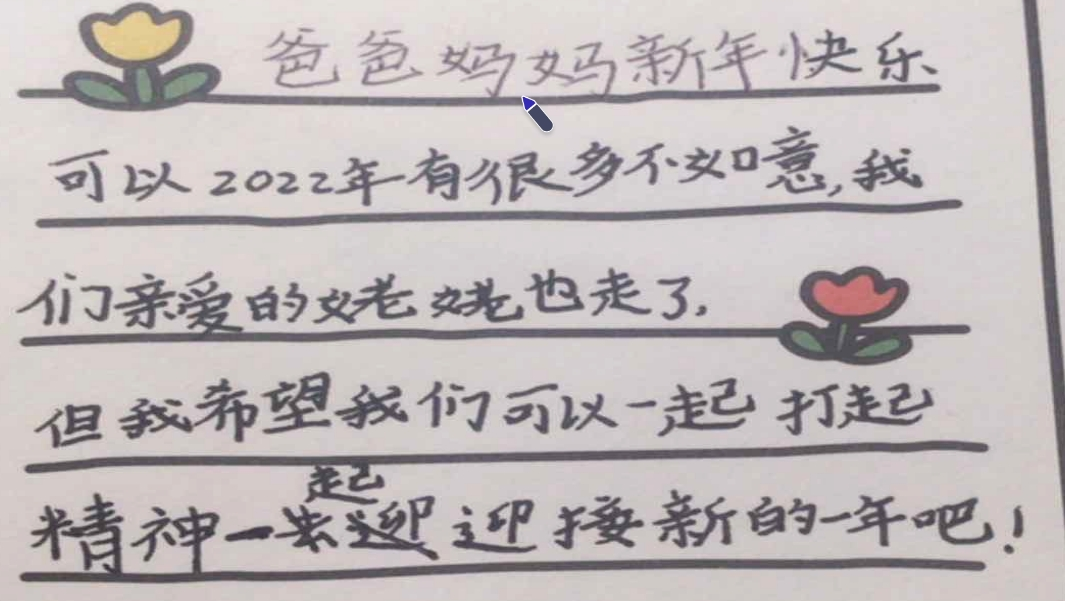 爸爸妈妈新年快乐
可以2022年有很多不如意,我
们亲爱的姥姥也走了.
但我希望我们可以一起打起
精神一起去迎接新的一年吧!